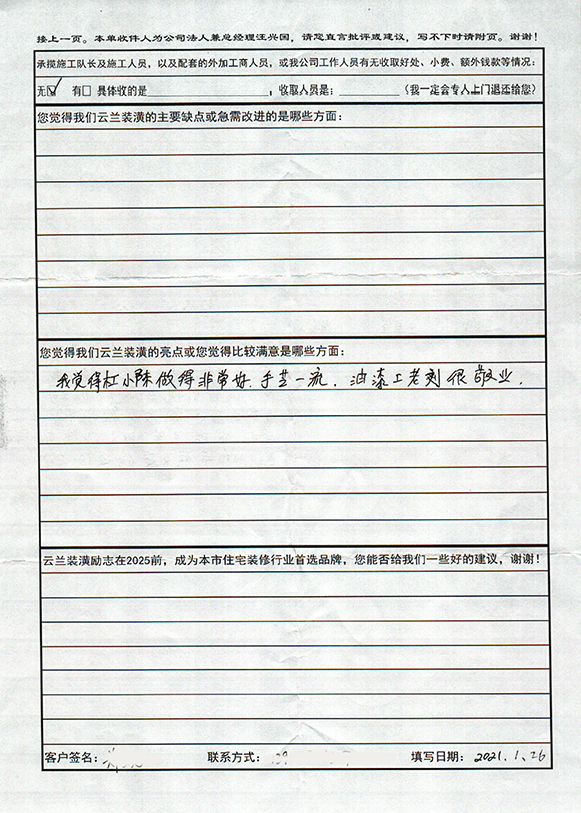 接上一页。本单收件人为公司法人兼总经理汪兴国，请您直言批评或建议，写不下时请附页。谢谢！
承揽施工队长及施工人员，以及配套的外加工商人员，或我公司工作人员有无收取好处、小费、额外钱款等情况：
无☑ 有□ 具体收的是＿＿＿＿＿＿＿＿，收取人员是：＿＿＿＿＿（我一定会专人上门退还给您）
您觉得我们云兰装潢的主要缺点或急需改进的是哪些方面：
您觉得我们云兰装潢的亮点或您觉得比较满意是哪些方面：
我觉得杠小陈做得非常好.手艺一流.油漆工老刘很敬业.
云兰装潢励志在2025前，成为本市住宅装修行业首选品牌，您能否给我们一些好的建议，谢谢！
客户签名： 联系方式： 填写日期：2021.1.26